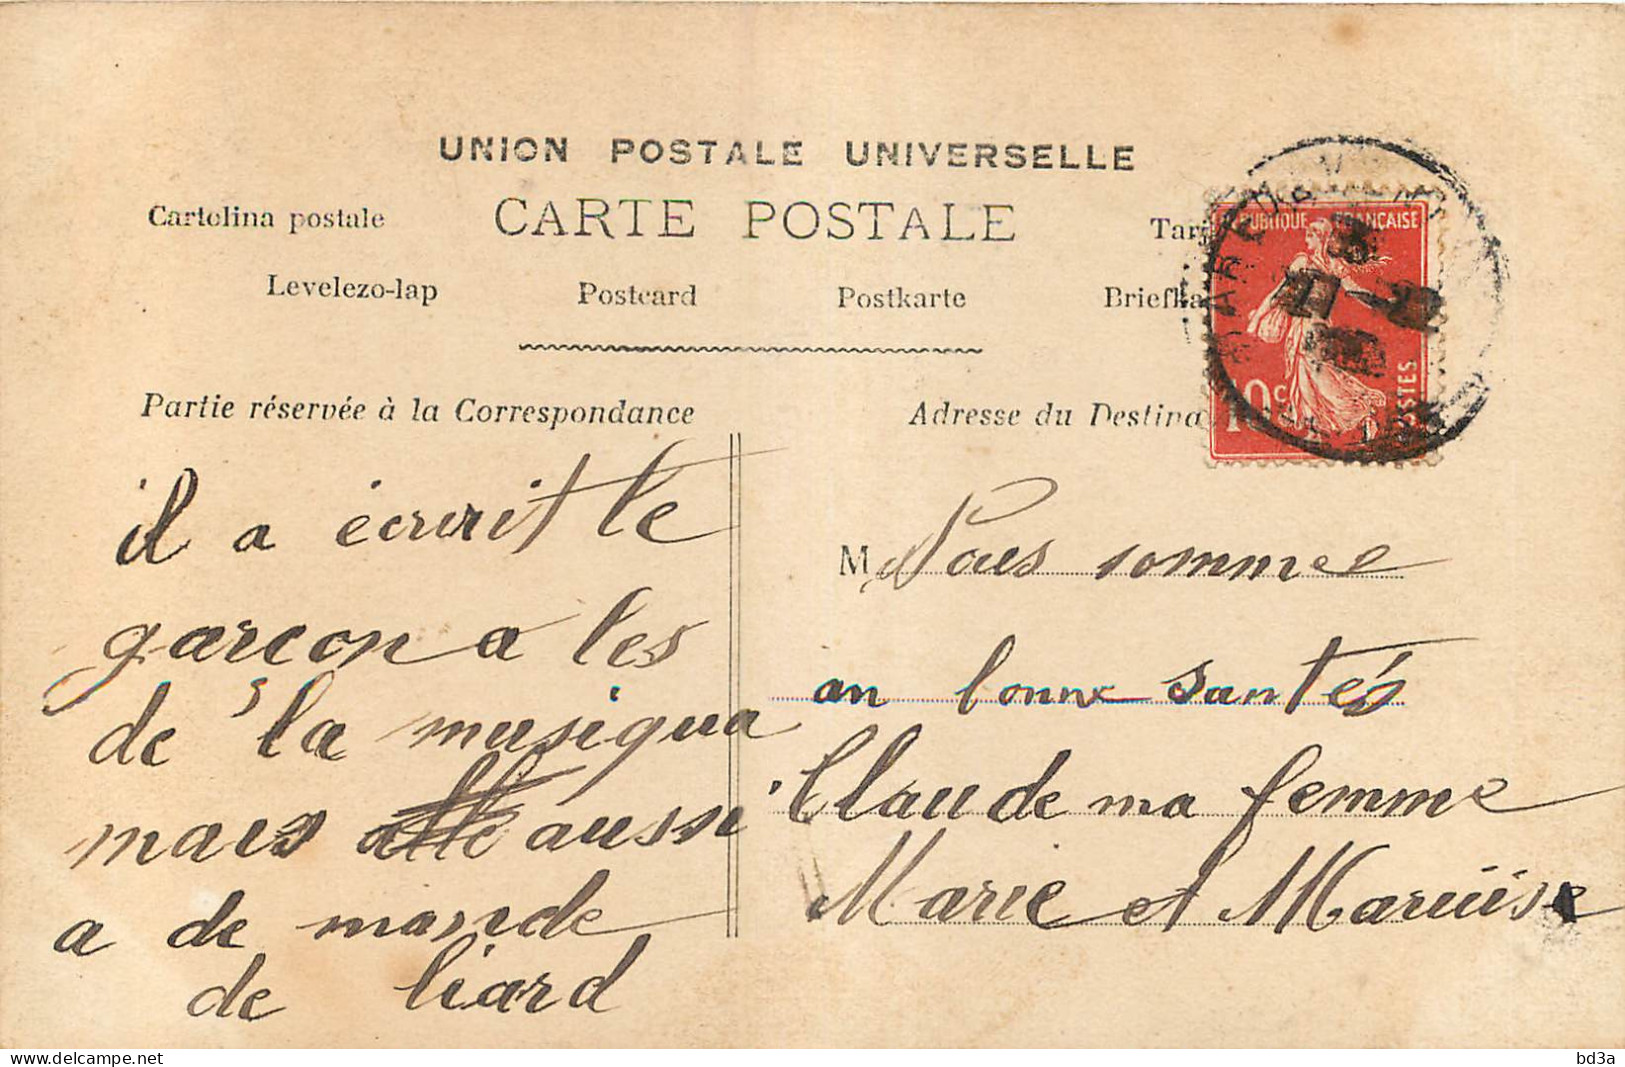 UNION POSTALE UNIVERSELLE
CARTE POSTALE
Cartolina postale
Tar
Levelezo-lap
Postcard
Postkarte
Briefka
Partie réservée à la Correspondance
Adresse du Destina
PUBLIQUE FRANÇAISE
10c
POSTES
il a écrit le
garcon a les
de la musiqua
mais aussi
a de mande
de liard
M Nous sommee
an bonne santés
Claude ma femme
Marie et
delcampe.net
bd3a